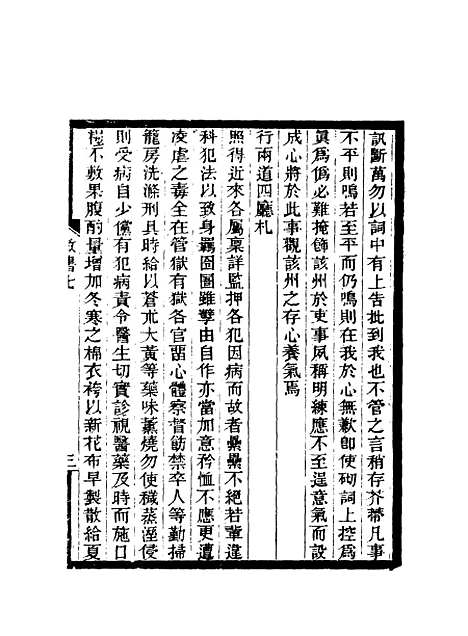 訊斷萬勿以詞中有上告批到我也不管之言稍存芥蒂凡事
不平則鳴若至平而仍鳴則在我於心無歉卽使砌詞上控爲
眞爲僞必難掩飾該州於吏事夙稱明練應不至逞意氣而設
成心將於此事觀該州之存心養氣焉
行兩道四廳札
照得近來各屬稟詳監押各犯因病而故者纍纍不絕若輩違
科犯法以致身羈囹圄雖孽由自作亦當加意矜恤不應更遭
凌虐之毒全在管獄有獄各官留心體察督飭禁卒人等勤掃
籠房洗滌刑具時給以蒼朮大黃等藥味薰燒勿使穢蒸溼侵
則受病自少儻有犯病責令醫生切實診視醫藥及時而施口
糧不敷果腹酌量增加冬寒之棉衣袴以新花布早製散給夏
三